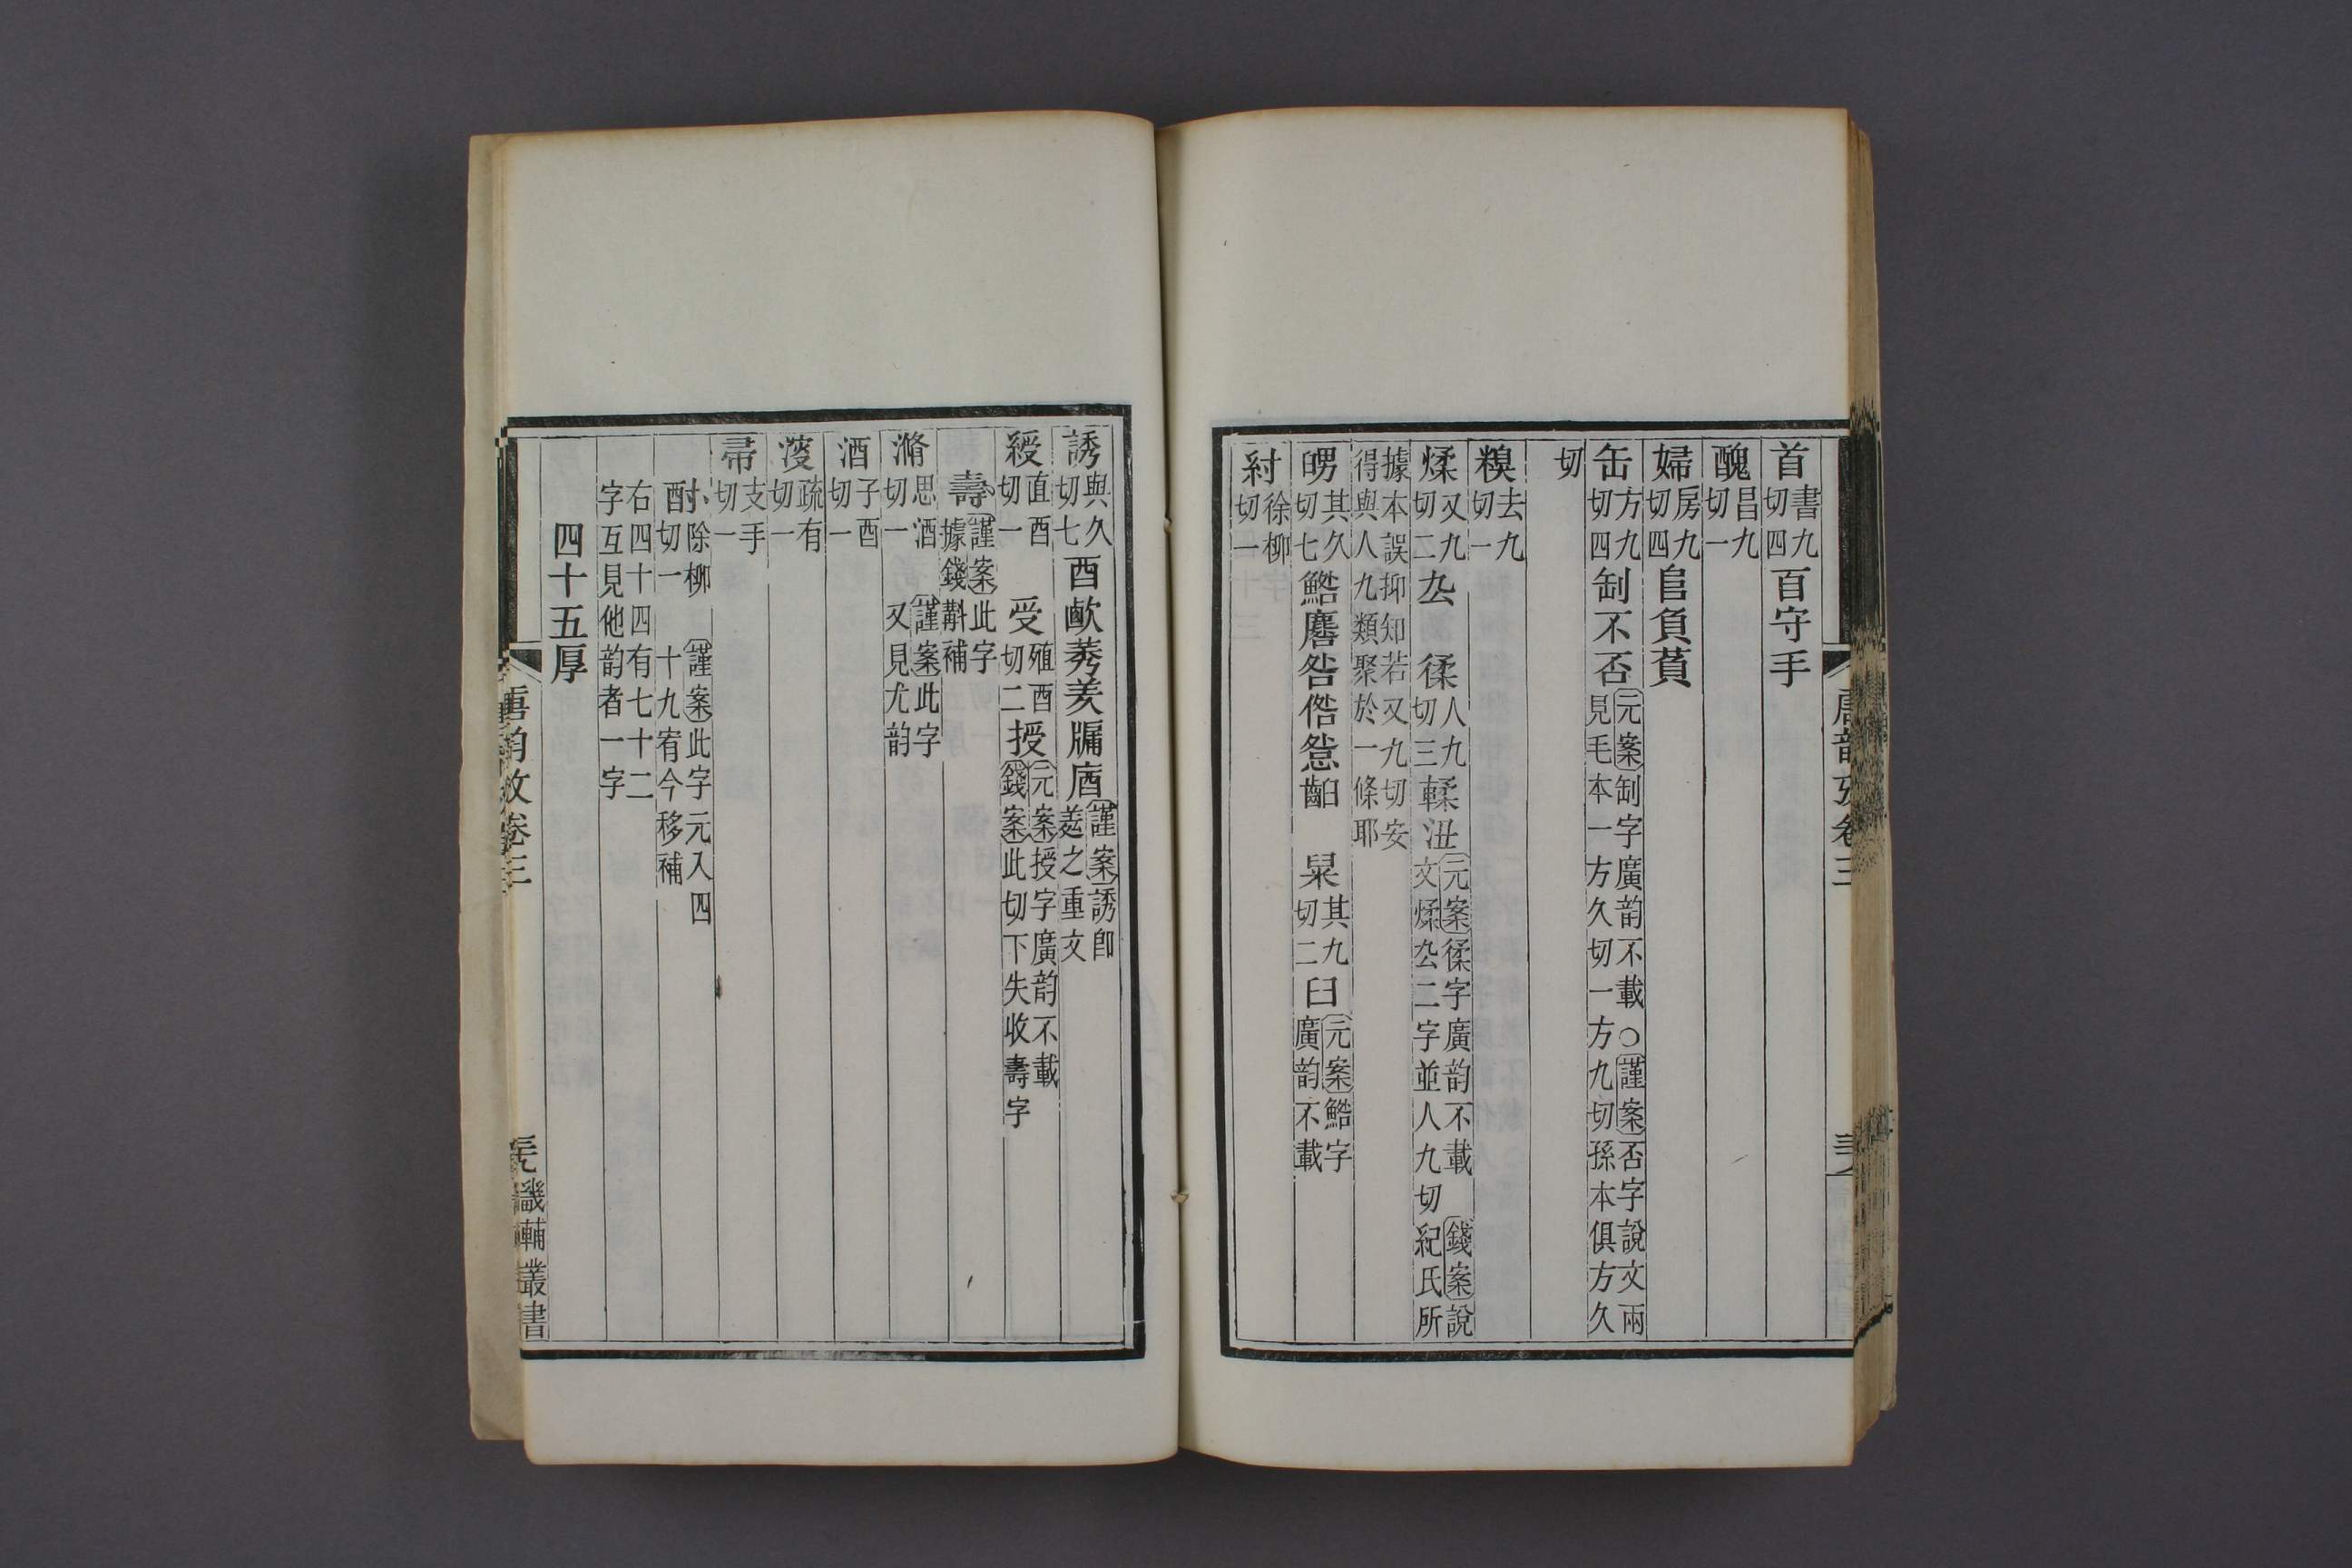 首書九切四百守手
醜昌九切一
婦房九切四𨸏負萯
缶方九切四𦈢不否元案𦈢字廣韵不載○謹案否字說文兩見毛本一方久切一方九切孫本俱方久
切
糗去九切一
煣又九切二厹 徖人九切三輮沑元案徖字廣韵不載錢案說文煣厹二字並人九切紀氏所
據本誤抑知若又九切安得與人九類聚於一條耶
𦤎其久切七鯦麔咎倃㤩齨 㮇其九切二臼元案鯦字廣韵不載
紂徐柳切一
唐韵攷卷三
誘與久切七酉歐莠羑牖庮謹案誘卽羑之重文
綬直酉切一 受殖酉切二授元案授字廣韵不載錢案此切下失收壽字
壽謹案此字據錢斠補
滫思酒切一 謹案此字又見尤韵
酒子酉切一
溲疏有切一
帚支手切一
酎除柳切一 謹案此字元入四十九宥今移補
右四十四有七十二字互見他韵者一字
四十五厚
唐韵攷卷三
畿輔叢書